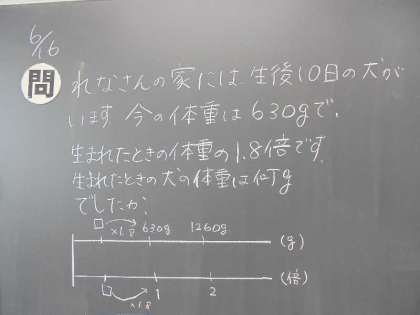 6/16
問
れなさんの家には生後10日の犬が
います 今の体重は630gで、
生まれたときの体重の1.8倍です
生まれたときの犬の体重は何g
でしたか?
□ ×1.8 630g 1260g (g)
□ ×1.8 1 2 (倍)